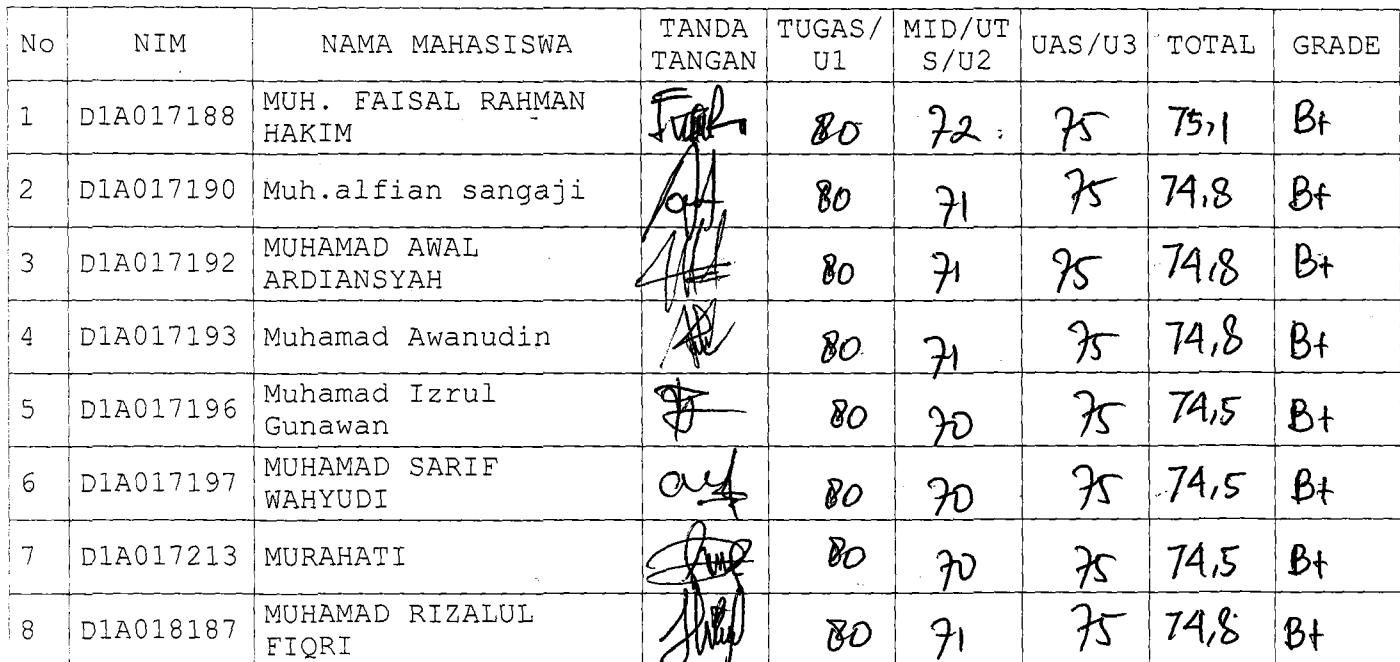 No NIM NAMA MAHASISWA TANDA TANGAN TUGAS/U1 MID/UTS/U2 UAS/U3 TOTAL GRADE
1 D1A017188 MUH. FAISAL RAHMAN HAKIM 80 72 75 75,1 B+
2 D1A017190 Muh.alfian sangaji 80 71 75 74,8 B+
3 D1A017192 MUHAMAD AWAL ARDIANSYAH 80 71 75 74,8 B+
4 D1A017193 Muhamad Awanudin 80 71 75 74,8 B+
5 D1A017196 Muhamad Izrul Gunawan 80 70 75 74,5 B+
6 D1A017197 MUHAMAD SARIF WAHYUDI 80 70 75 74,5 B+
7 D1A017213 MURAHATI 80 70 75 74,5 B+
8 D1A018187 MUHAMAD RIZALUL FIQRI 80 71 75 74,8 B+